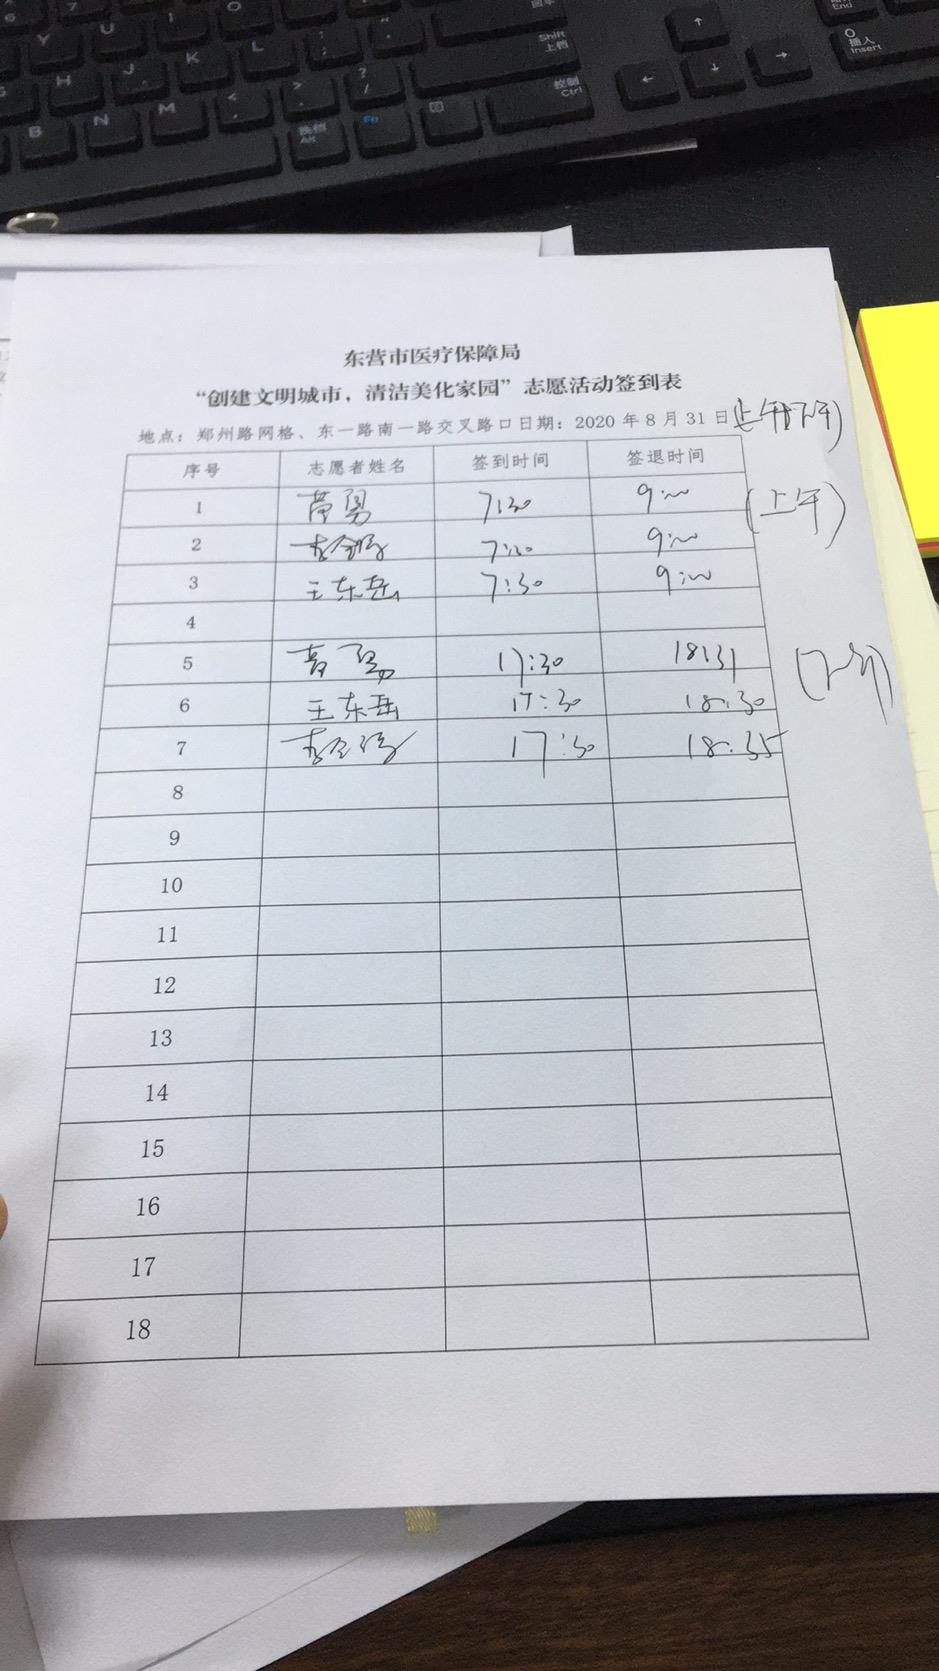 东营市医疗保障局
“创建文明城市，清洁美化家园”志愿活动签到表
地点：郑州路网格、东一路南一路交叉路口日期：2020 年 8 月 31 日
序号 志愿者姓名 签到时间 签退时间
1 7:30 9:00 (上午)
2 7:30 9:00
3 王东岳 7:30 9:00
4
5 17:30 18:31 (下午)
6 王东岳 17:30 18:30
7 17:30 18:35
8
9
10
11
12
13
14
15
16
17
18